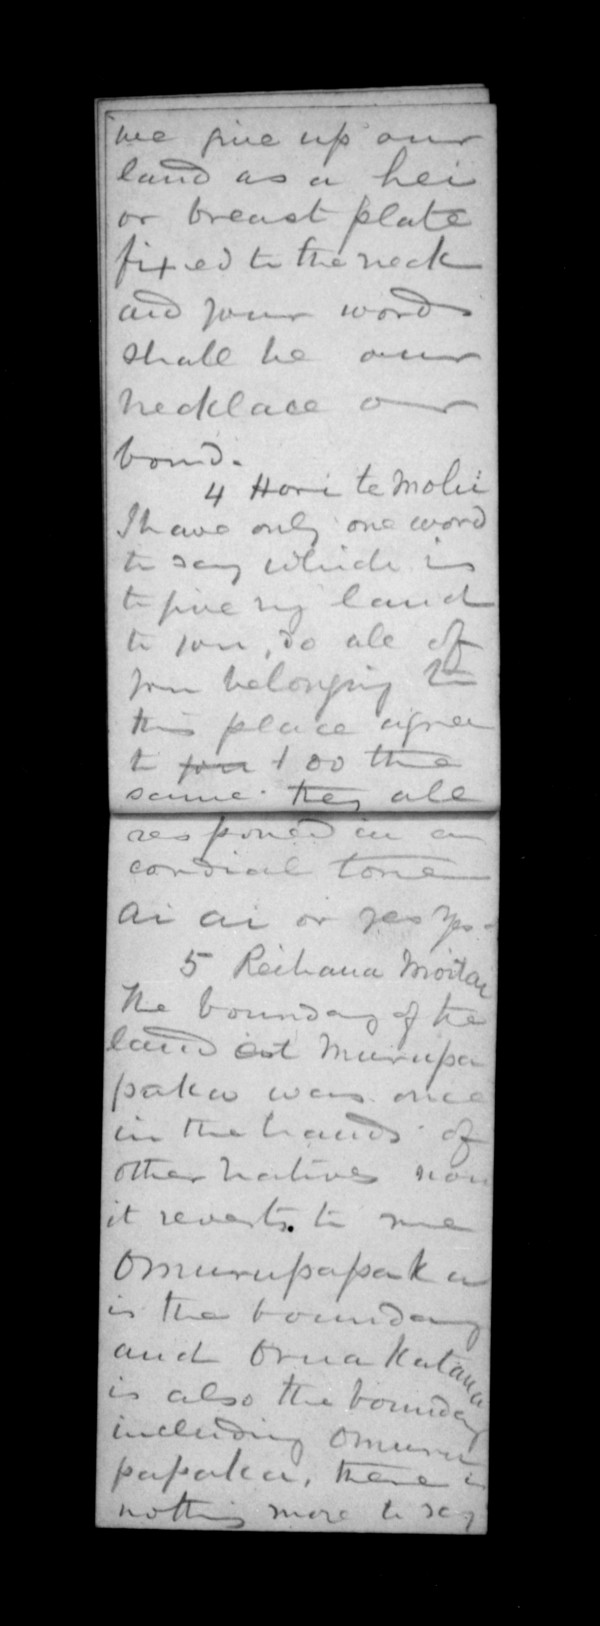 we give up our
land as a hei
or breast plate
fixed to the neck
and your words
shall be our
necklace our
bond.
4 Hori te Mohi
I have only one word
to say which is
to give my land
to you, do all of
you belonging to
this place agree
to you & do the
same. they all
respond in a
cordial tone
Ai ai or yes yes.
5 Reihana Moitai
The bounday of the
land at Murupa
paka was once
in the hands of
other natives now
it reverts to me
Omurupapaka
is the bounday
and Orua Katana
is also the bounday
including Omuru
papaka, there is
nothing more to say